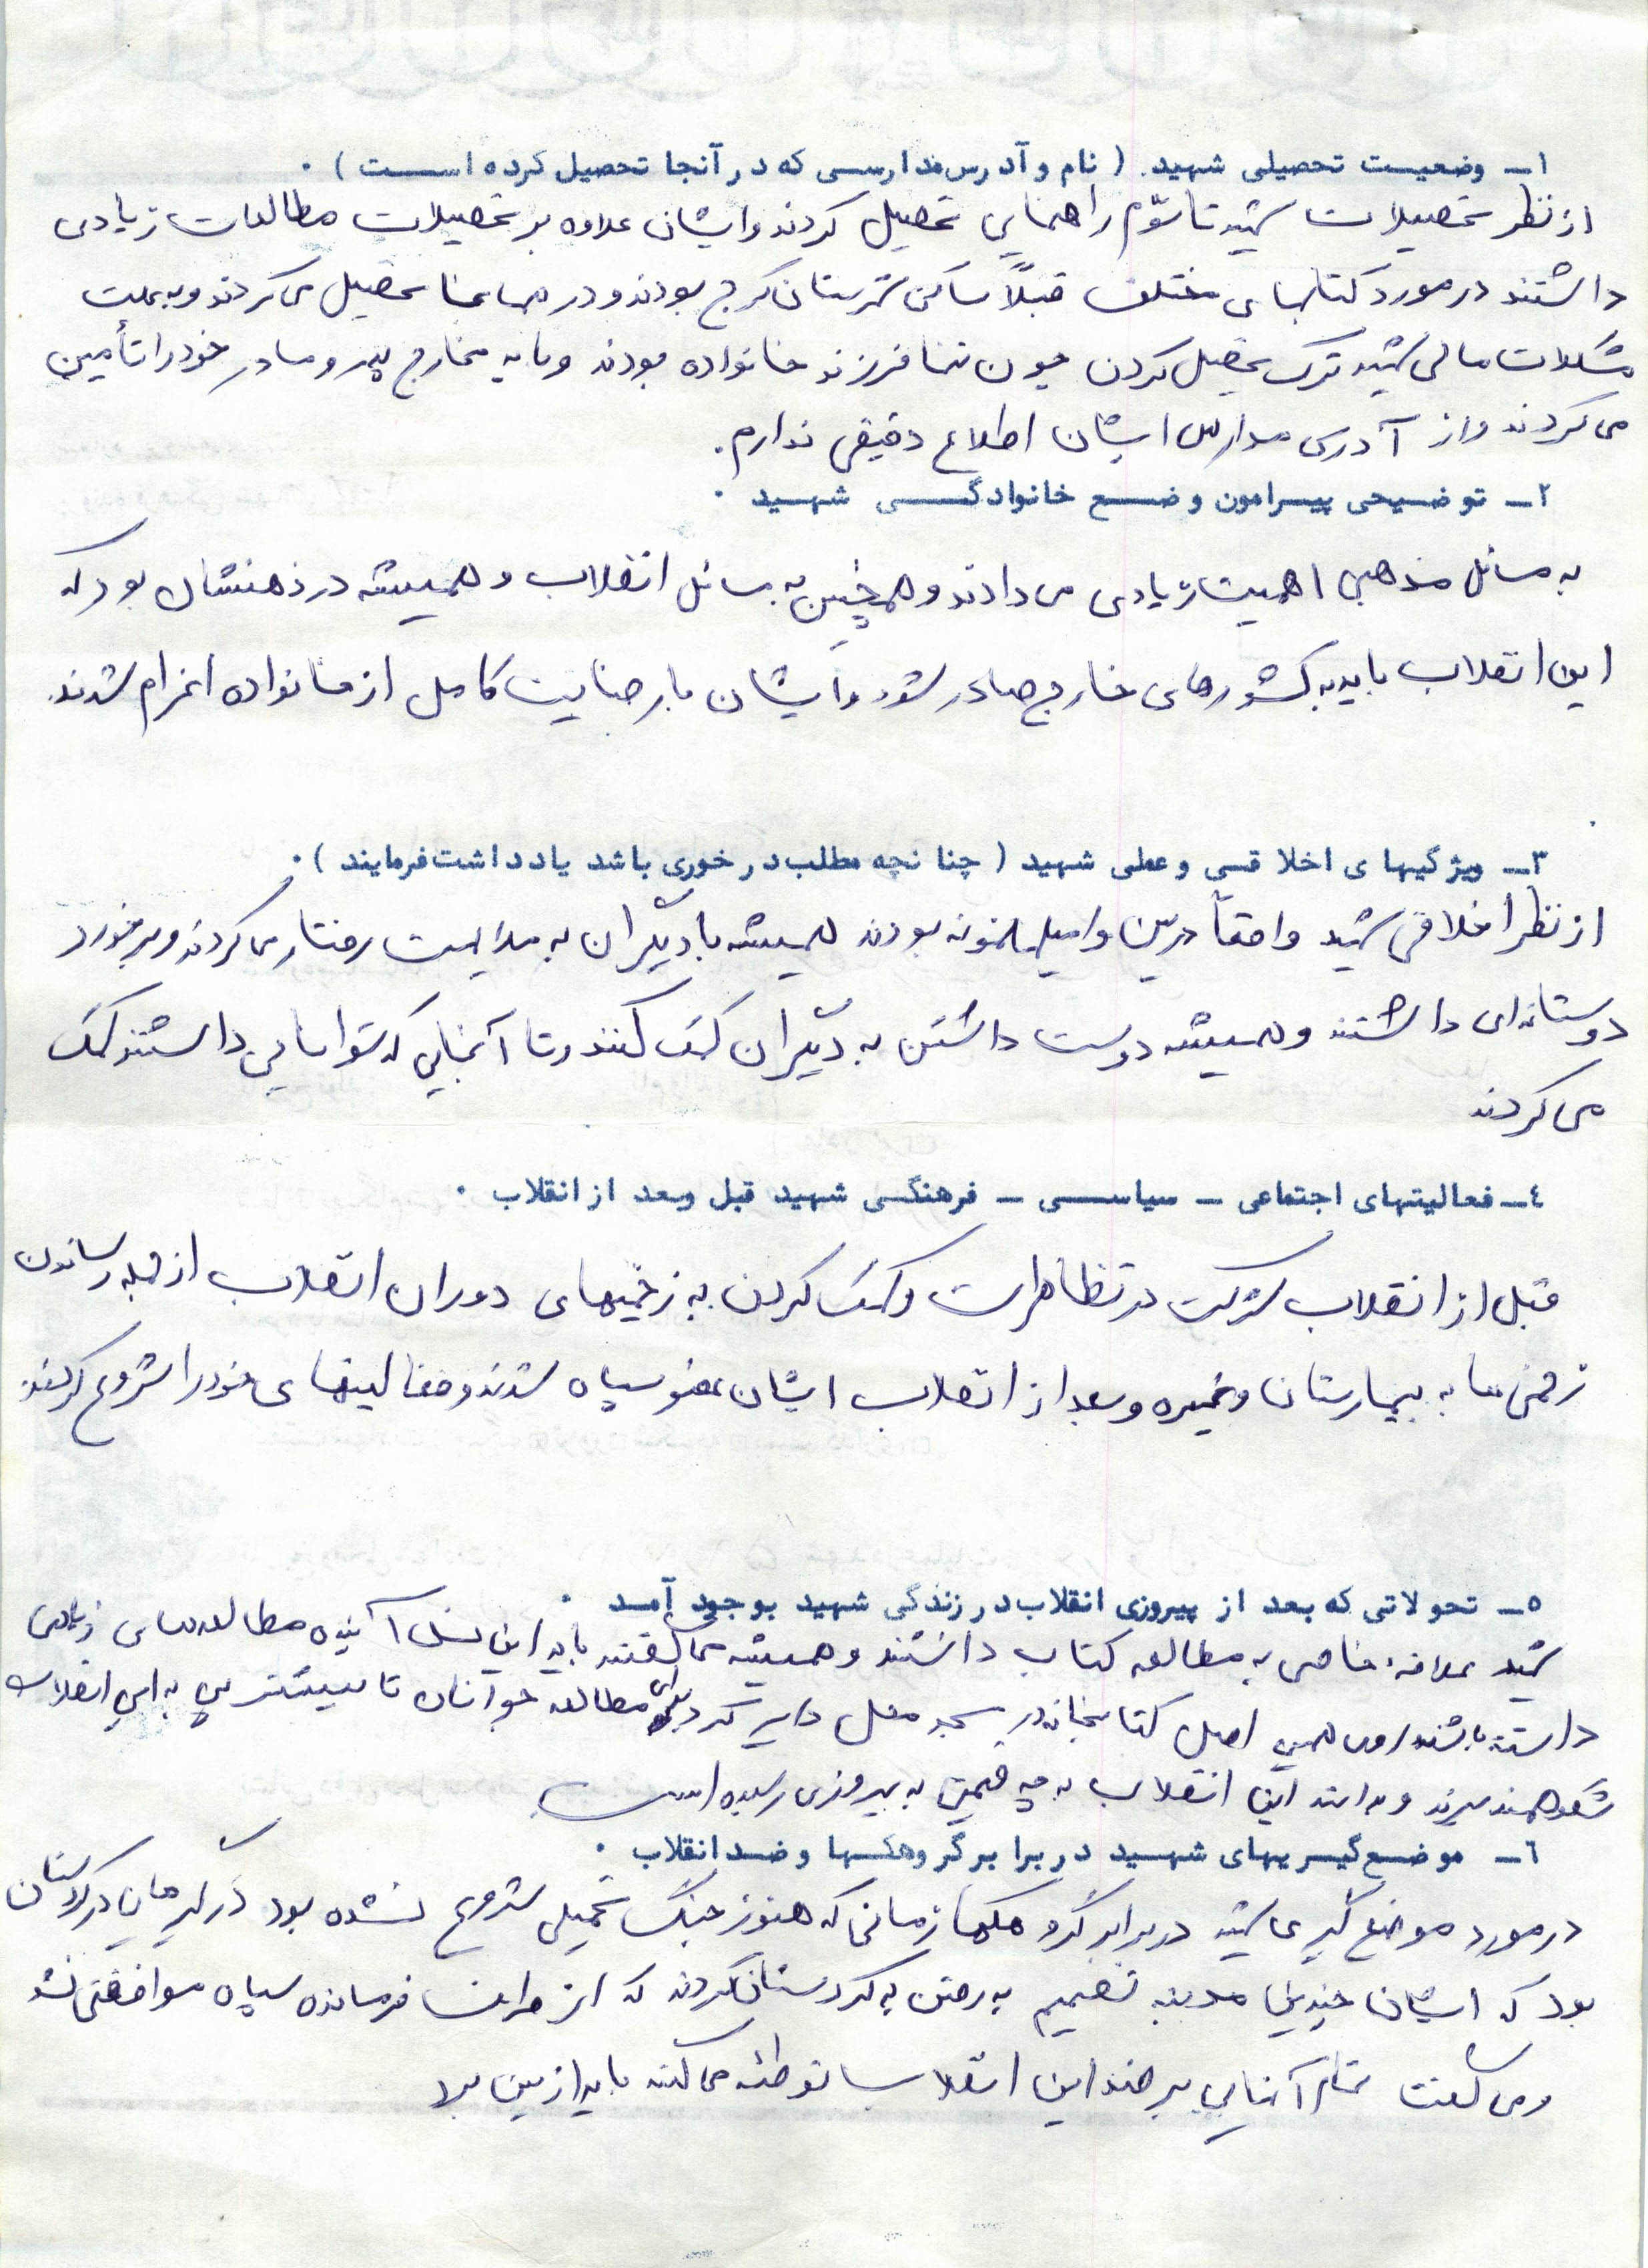 ۱ـ وضعیت تحصیلی شهید . ( نام و آدرس مدارسی که در آنجا تحصیل کرده است ) .
از نظر تحصیلات شهید تا سوّم راهنمایی تحصیل کردند و ایشان علاوه بر تحصیلات مطالعات زیادی
داشتند در مورد کتابهای مختلف قبلاً ساکن شهرستان کرج بودند و در همانجا تحصیل می کردند و به علت
مشکلات مالی شهید ترک تحصیل کردن چون تنها فرزند خانواده بودند و باید مخارج پدر و مادر خود را تأمین
می کردند و از آدرس مدارس ایشان اطلاع دقیقی ندارم .
۲ـ توضیحی پیرامون وضع خانوادگی شهید .
به مسائل مذهبی اهمیت زیادی می دادند و همچنین به مسائل انقلاب و همیشه در ذهنشان بود که
این انقلاب باید به کشورهای خارج صادر شود و ایشان با رضایت کامل از خانواده اعزام شدند .
۳ـ ویژگیهای اخلاقی و عملی شهید ( چنانچه مطلب درخوری باشد یادداشت فرمایند ) .
از نظر اخلاقی شهید واقعاً در بین فامیل نمونه بودند همیشه با دیگران به ملایمت رفتار می کردند و برخورد
دوستانه ای داشتند و همیشه دوست داشتن به دیگران کمک کنند و تا آنجایی که توانایی داشتند کمک
می کردند
٤ـ فعالیتهای اجتماعی ـ سیاسی ـ فرهنگی شهید قبل وبعد از انقلاب .
قبل از انقلاب شرکت در تظاهرات و کمک کردن به زخمیهای دوران انقلاب از جمله رساندن
زخمی ها به بیمارستان و غیره و بعد از انقلاب ایشان عضو سپاه شدند و فعالیتهای خود را شروع کردند
۵ـ تحولاتی که بعد از پیروزی انقلاب در زندگی شهید بوجود آمد .
شهید علاقه خاصی به مطالعه کتاب داشتند و همیشه می گفتند باید این نسل آینده مطالعه های زیادی
داشته باشند روی همین اصل کتابخانه در مسجد محل دایر کرد برای مطالعه جوانان تا بیشتر پی به این انقلاب
شکوهمند ببرند و بدانند این انقلاب به چه قیمتی به پیروزی رسیده است
٦ـ موضع گیریهای شهید در برابر گروهکها و ضد انقلاب .
در مورد موضع گیری شهید در برابر گروهکها زمانی که هنوز جنگ تحمیلی شروع نشده بود درگیرهایی در کردستان
بود که ایشان چندین مرتبه تصمیم به رفتن به کردستان کردند که از طرف فرمانده سپاه موافقتی نشد
و می گفت تمام آنهایی بر ضد این انقلاب توطئه می کنند باید از بین برد